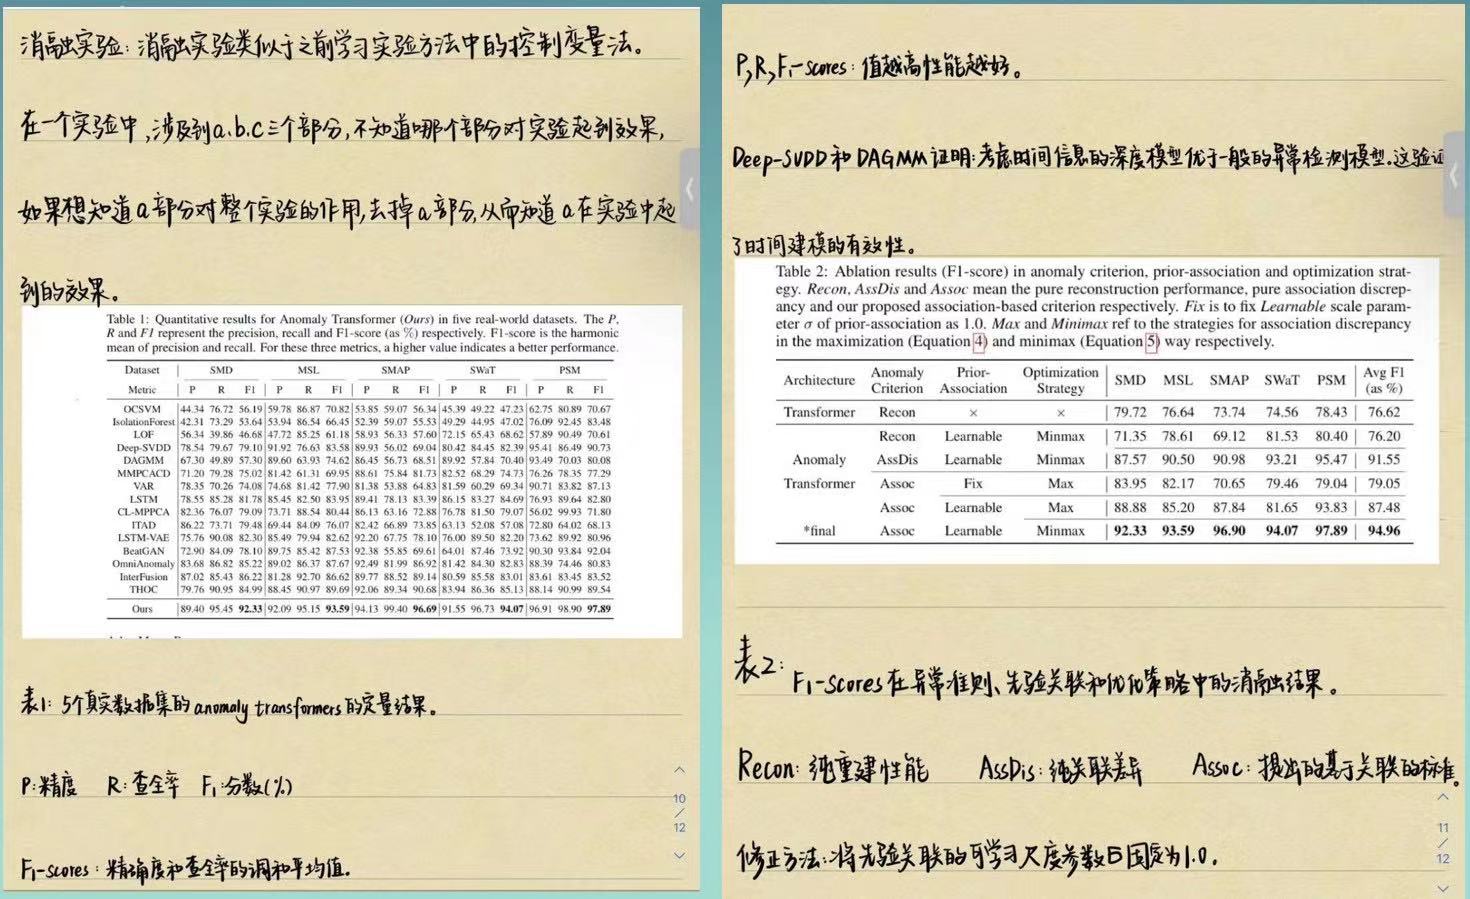 消融实验：消融实验类似于之前学习实验方法中的控制变量法。
在一个实验中，涉及到a.b.c三个部分，不知道哪个部分对实验起到效果，
如果想知道a部分对整个实验的作用，去掉a部分，从而知道a在实验中起
到的效果。
Table 1: Quantitative results for Anomaly Transformer (Ours) in five real-world datasets. The P,
R and F1 represent the precision, recall and F1-score (as %) respectively. F1-score is the harmonic
mean of precision and recall. For these three metrics, a higher value indicates a better performance.
Dataset SMD MSL SMAP SWaT PSM
Metric P R F1 P R F1 P R F1 P R F1 P R F1
OCSVM 44.34 76.72 56.19 59.78 86.87 70.82 53.85 59.07 56.34 45.39 49.22 47.23 62.75 80.89 70.67
IsolationForest 42.31 73.29 53.64 53.94 86.54 66.45 52.39 59.07 55.53 49.29 44.95 47.02 76.09 92.45 83.48
LOF 56.34 39.86 46.68 47.72 85.25 61.18 58.93 56.33 57.60 72.15 65.43 68.62 57.89 90.49 70.61
Deep-SVDD 78.54 79.67 79.10 91.92 76.63 83.58 89.93 56.02 69.04 80.42 84.45 82.39 95.41 86.49 90.73
DAGMM 67.30 49.89 57.30 89.60 63.93 74.62 86.45 56.73 68.51 89.92 57.84 70.40 93.49 70.03 80.08
MMPCACD 71.20 79.28 75.02 81.42 61.31 69.95 88.61 75.84 81.73 82.52 68.29 74.73 76.26 78.35 77.29
VAR 78.35 70.26 74.08 74.68 81.42 77.90 81.38 53.88 64.83 81.59 60.29 69.34 90.71 83.82 87.13
LSTM 78.55 85.28 81.78 85.45 82.50 83.95 89.41 78.13 83.39 86.15 83.27 84.69 76.93 89.64 82.80
CL-MPPCA 82.36 76.07 79.09 73.71 88.54 80.44 86.13 63.16 72.88 76.78 81.50 79.07 56.02 99.93 71.80
ITAD 86.22 73.71 79.48 69.44 84.09 76.07 82.42 66.89 73.85 63.13 52.08 57.08 72.80 64.02 68.13
LSTM-VAE 75.76 90.08 82.30 85.49 79.94 82.62 92.20 67.75 78.10 76.00 89.50 82.20 73.62 89.92 80.96
BeatGAN 72.90 84.09 78.10 89.75 85.42 87.53 92.38 55.85 69.61 64.01 87.46 73.92 90.30 93.84 92.04
OmniAnomaly 83.68 86.82 85.22 89.02 86.37 87.67 92.49 81.99 86.92 81.42 84.30 82.83 88.39 74.46 80.83
InterFusion 87.02 85.43 86.22 81.28 92.70 86.62 89.77 88.52 89.14 80.59 85.58 83.01 83.61 83.45 83.52
THOC 79.76 90.95 84.99 88.45 90.97 89.69 92.06 89.34 90.68 83.94 86.36 85.13 88.14 90.99 89.54
Ours 89.40 95.45 92.33 92.09 95.15 93.59 94.13 99.40 96.69 91.55 96.73 94.07 96.91 98.90 97.89
表1: 5个真实数据集的anomaly transformers的定量结果。
P:精度 R:查全率 F1:分数(%)
F1-scores：精确度和查全率的调和平均值。
10
/
12
P,R,F1-scores：值越高性能越好。
Deep-SVDD和DAGMM证明：考虑时间信息的深度模型优于一般的异常检测模型.这验证
了时间建模的有效性。
Table 2: Ablation results (F1-score) in anomaly criterion, prior-association and optimization strat-
egy. Recon, AssDis and Assoc mean the pure reconstruction performance, pure association discrep-
ancy and our proposed association-based criterion respectively. Fix is to fix Learnable scale param-
eter σ of prior-association as 1.0. Max and Minimax ref to the strategies for association discrepancy
in the maximization (Equation 4) and minimax (Equation 5) way respectively.
Architecture Anomaly Criterion Prior-Association Optimization Strategy SMD MSL SMAP SWaT PSM Avg F1 (as %)
Transformer Recon × × 79.72 76.64 73.74 74.56 78.43 76.62
Recon Learnable Minmax 71.35 78.61 69.12 81.53 80.40 76.20
Anomaly AssDis Learnable Minmax 87.57 90.50 90.98 93.21 95.47 91.55
Transformer Assoc Fix Max 83.95 82.17 70.65 79.46 79.04 79.05
Assoc Learnable Max 88.88 85.20 87.84 81.65 93.83 87.48
*final Assoc Learnable Minmax 92.33 93.59 96.90 94.07 97.89 94.96
表2：
F1-scores在异常准则、先验关联和优化策略中的消融结果。
Recon：纯重建性能 AssDis：纯关联差异 Assoc：提出的基于关联的标准。
修正方法：将先验关联的可学习尺度参数σ固定为1.0.
11
/
12